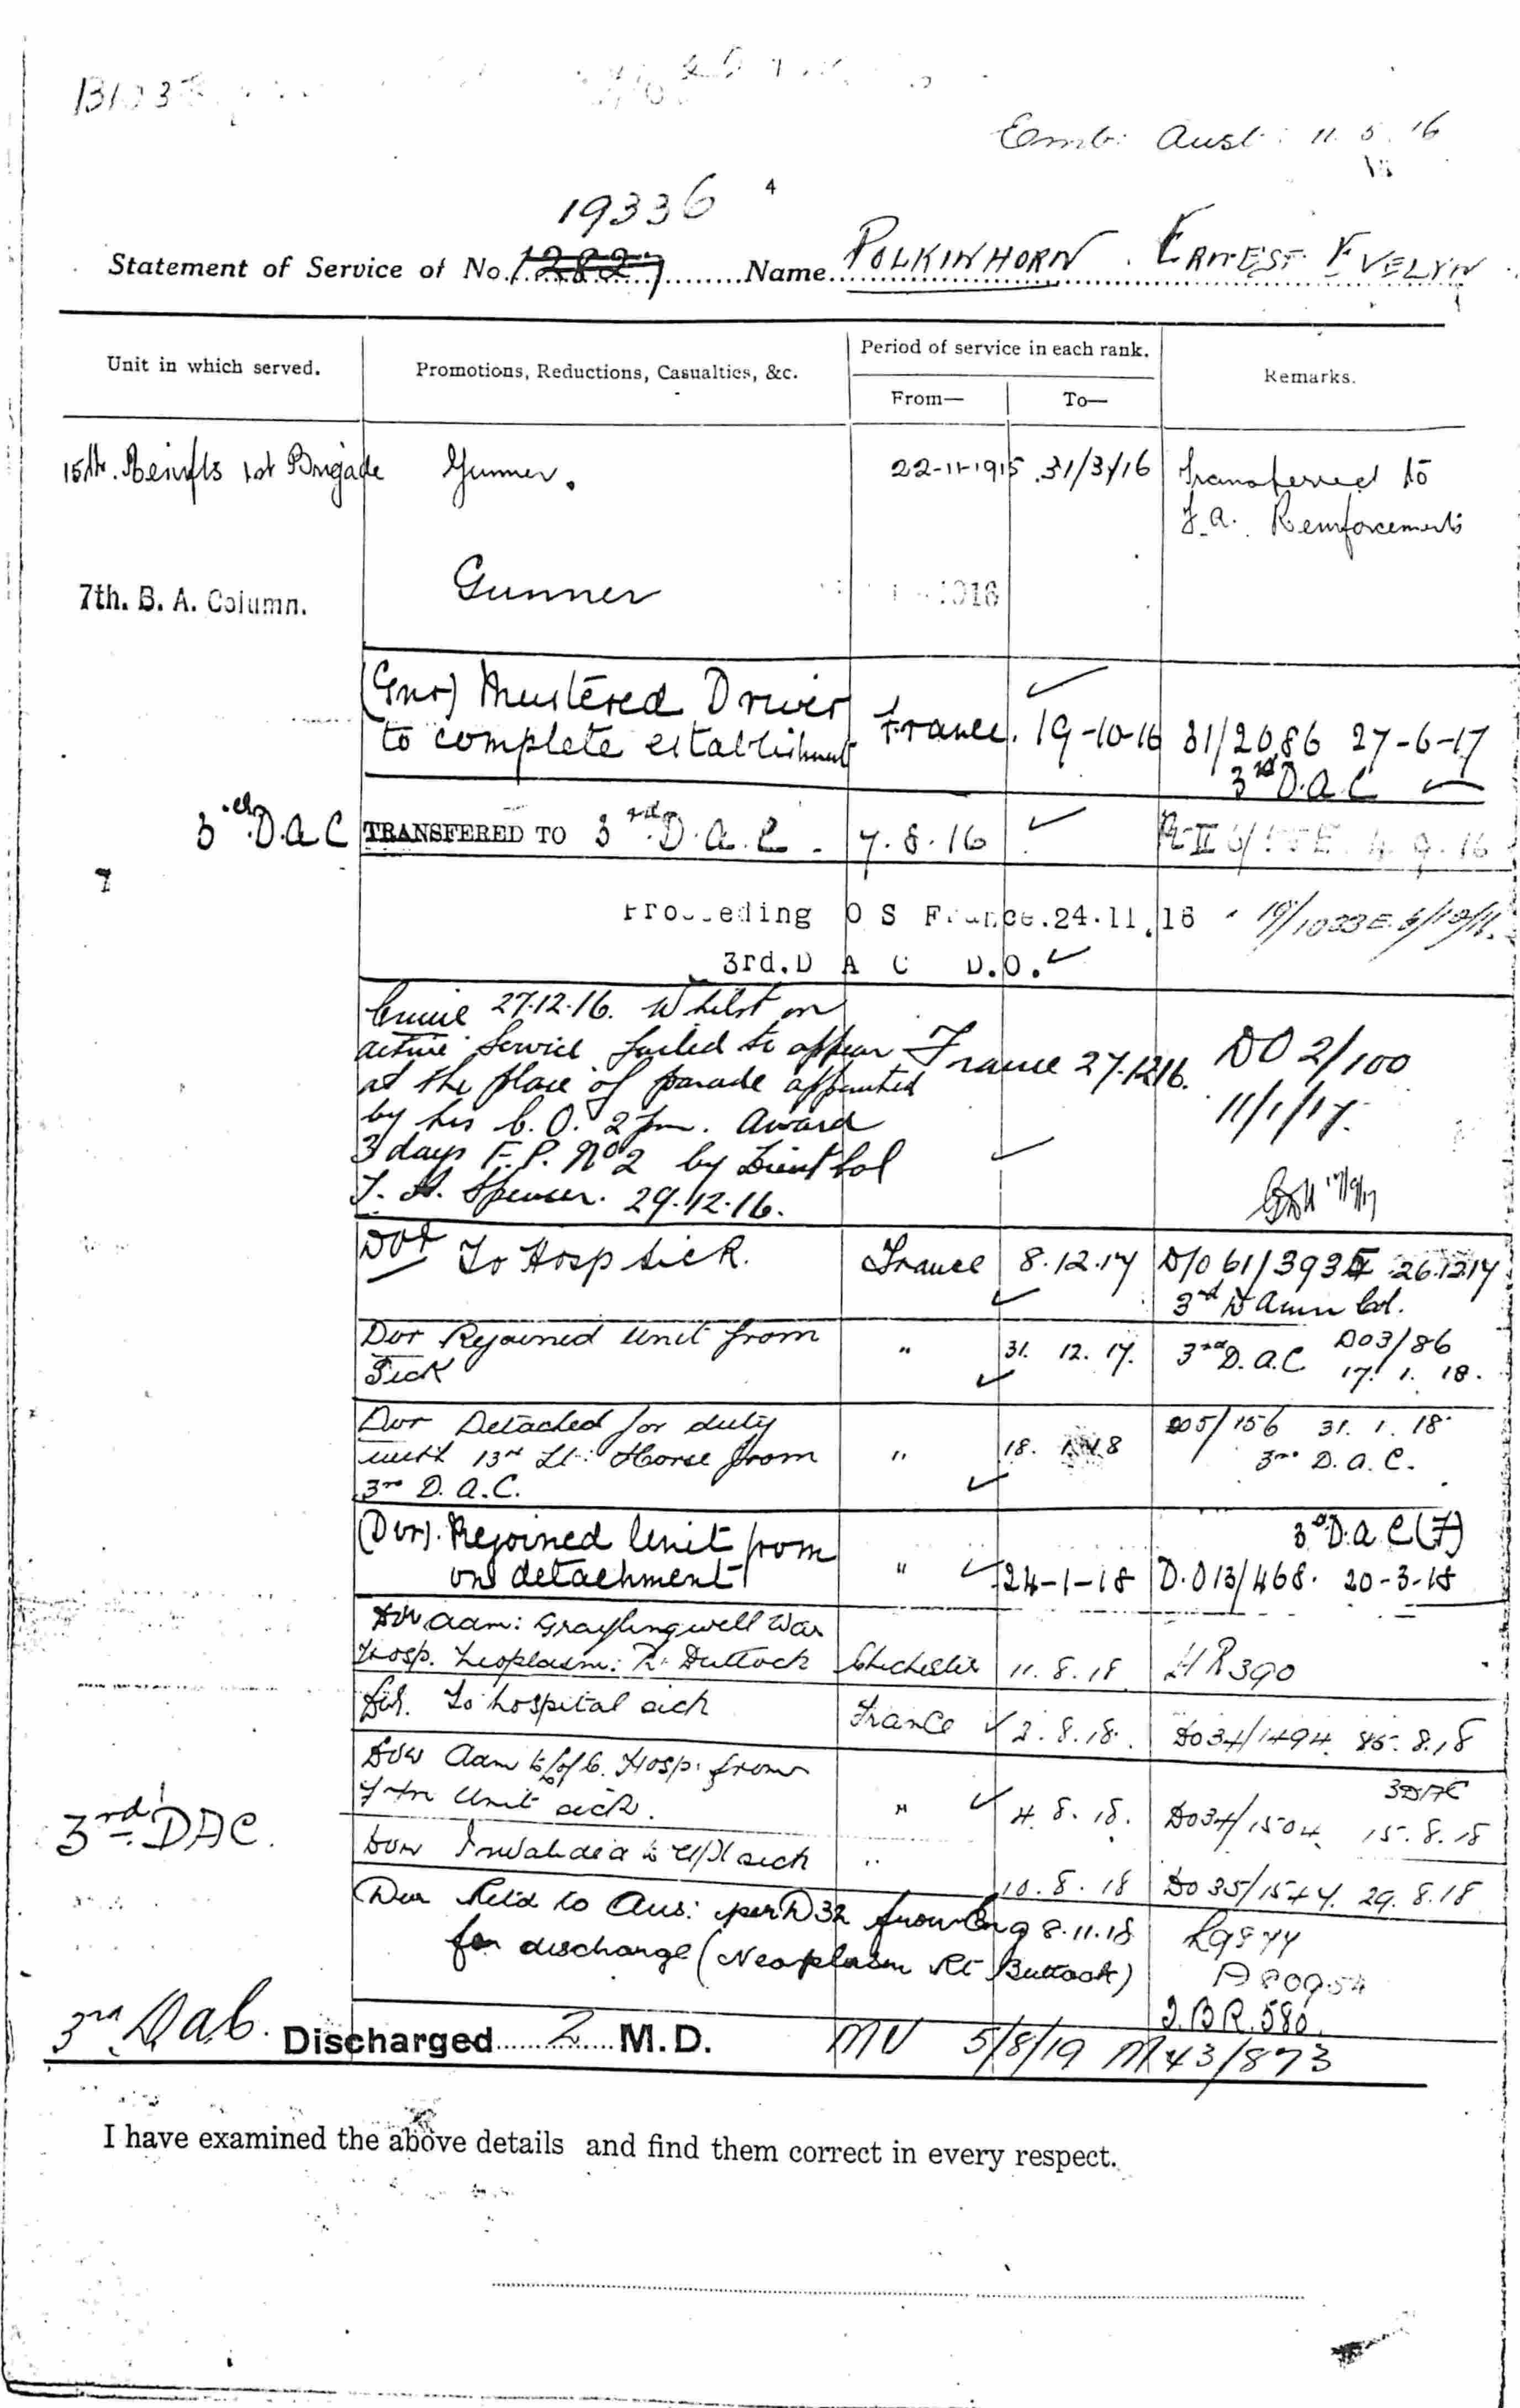 Emb: Aust: 11. 5. 16
19336
4
Statement of Service of No. 12827 Name POLKINHORN. ERNEST EVELYN
Unit in which served.
Promotions, Reductions, Casualties, &c.
Period of service in each rank.
From—
To—
Remarks.
15th. Reinfts 1st Brigade Gunner. 22-11-1915 31/3/16 Transferred to
F.A. Reinforcements
7th. B. A. Column. Gunner 1916
(Gnr) Mustered Driver
to complete establishment France. 19-10-16 31/2086 27-6-17
3rd D.A.C
3rd D.A.C TRANSFERED TO 3rd D.A.C. 7.8.16
Proceeding O S France.24.11.16
3rd.D A C D.O.
Crime 27.12.16. Whilst on
active service failed to appear
at the place of parade appointed
by his C.O. 2 pm. Award
3 days F.P. No 2 by Lieut Col
29.12.16.
France 27.12.16. DO 2/100
11/1/17.
Dvr To Hosp sick. France 8.12.17 D/O 61/3935 26.12.17
3rd D Amm Col.
Dvr Rejoined Unit from
Sick " 31. 12. 17. 3rd D.A.C DO3/86
17. 1. 18.
Dvr Detached for duty
with 13th Lt: Horse from
3rd D.A.C. " 18. 1. 18 DO5/156 31. 1. 18
3rd D.A.C.
(Dvr). Rejoined Unit from
on detachment " 24-1-18 3rd D.A.C (F)
D.O 13/468. 20-3-18
Dvr Adm: Graylingwell War
Hosp. Neoplasm: Rt Buttock Chichester 11. 8. 18. HR390
Dvr. To hospital sick France 2. 8. 18. DO34/1494. 8.18
Dvr Adm to Hosp: from
Unit sick. " 4. 8. 18. 3DAC
DO34/1504. 15. 8. 18
3rd DAC.
Dvr Invalided to U/K sick " 10. 8. 18 DO35/1544. 29. 8. 18
Dvr Ret'd to Aus: per D32 from Eng 8.11.18
for discharge (Neoplasm Rt Buttock)
3rd DAC. Discharged 2 M.D. MU 5/8/19 M43/873
I have examined the above details and find them correct in every respect.